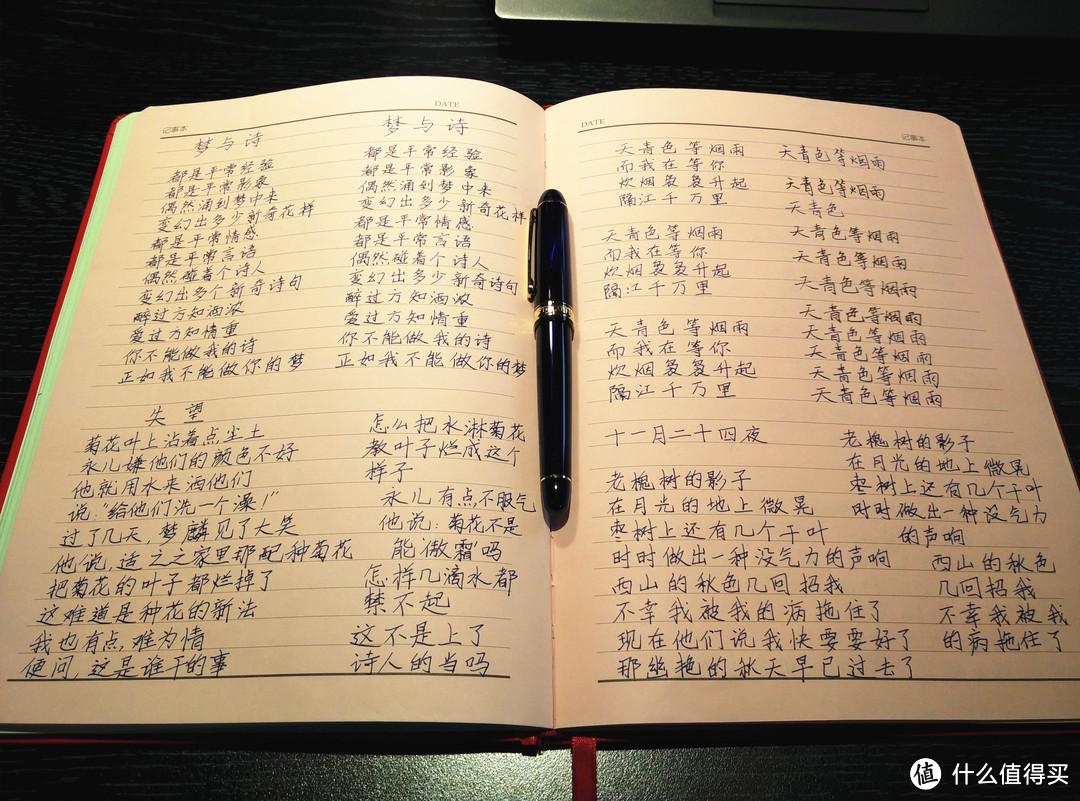 记事本
DATE
梦与诗
都是平常经验
都是平常影象
偶然涌到梦中来
变幻出多少新奇花样
都是平常情感
都是平常言语
偶然碰着个诗人
变幻出多个新奇诗句
醉过方知酒浓
爱过方知情重
你不能做我的诗
正如我不能做你的梦
梦与诗
都是平常经验
都是平常影象
偶然涌到梦中来
变幻出多少新奇花样
都是平常情感
都是平常言语
偶然碰着个诗人
变幻出多少新奇诗句
醉过方知酒浓
爱过方知情重
你不能做我的诗
正如我不能做你的梦
失望
菊花叶上沾着点尘土
永儿嫌他们的颜色不好
他就用水来洒他们
说:“给他们洗一个澡!”
过了几天,梦麟见了大笑
他说,适之之家里那配种菊花
把菊花的叶子都烂掉了
这难道是种花的新法
我也有点,难为情
便问,这是谁干的事
怎么把水淋菊花
教叶子烂成这个
样子
永儿有点不服气
他说:菊花不是
能傲霜吗
怎样几滴水都
禁不起
这不是上了
诗人的当吗
DATE
记事本
天青色等烟雨
而我在等你
炊烟袅袅升起
隔江千万里
天青色等烟雨
而我在等你
炊烟袅袅升起
隔江千万里
天青色等烟雨
而我在等你
炊烟袅袅升起
隔江千万里
天青色等烟雨
天青色等烟雨
天青色
天青色等烟雨
天青色等烟雨
天青色等烟雨
天青色等烟雨
天青色等烟雨
天青色等烟雨
天青色等烟雨
天青色等烟雨
十一月二十四夜
老槐树的影子
在月光的地上微晃
枣树上还有几个干叶
时时做出一种没气力的声响
西山的秋色几回招我
不幸我被我的病拖住了
现在他们说我快要要好了
那幽艳的秋天早已过去了
老槐树的影子
在月光的地上微晃
枣树上还有几个干叶
时时做出一种没气力
的声响
西山的秋色
几回招我
不幸我被我
的病拖住了
值 什么值得买